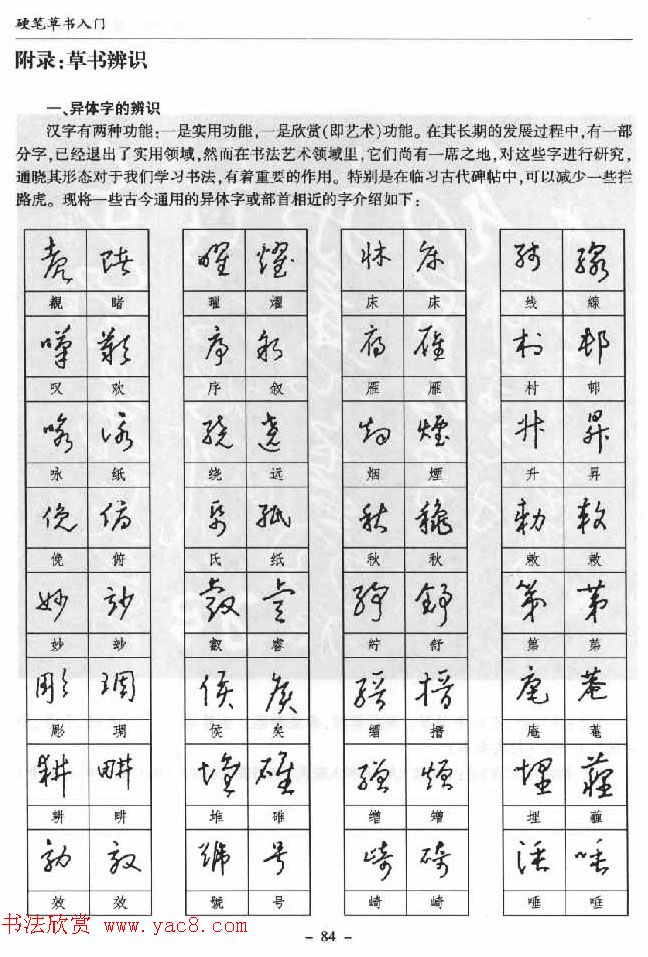 硬笔草书入门
附录:草书辨识
一、异体字的辨识
汉字有两种功能:一是实用功能,一是欣赏(即艺术)功能。在其长期的发展过程中,有一部
分字,已经退出了实用领域,然而在书法艺术领域里,它们尚有一席之地,对这些字进行研究,
通晓其形态对于我们学习书法,有着重要的作用。特别是在临习古代碑帖中,可以减少一些拦
路虎。现将一些古今通用的异体字或部首相近的字介绍如下:
觀 睹 曜 燿 床 床 线 線
叹 欢 序 叙 雁 雁 村 邨
咏 纸 绕 远 烟 煙 升 昇
俛 俯 氏 纸 秋 秋 敕 敕
妙 玅 叡 睿 紵 舒 第 苐
彫 琱 侯 矣 缙 搢 庵 菴
耕 畊 堆 碓 缯 矰 埋 薶
效 效 號 号 崎 崎 唾 唾
书法欣赏 www.yac8.com
- 84 -